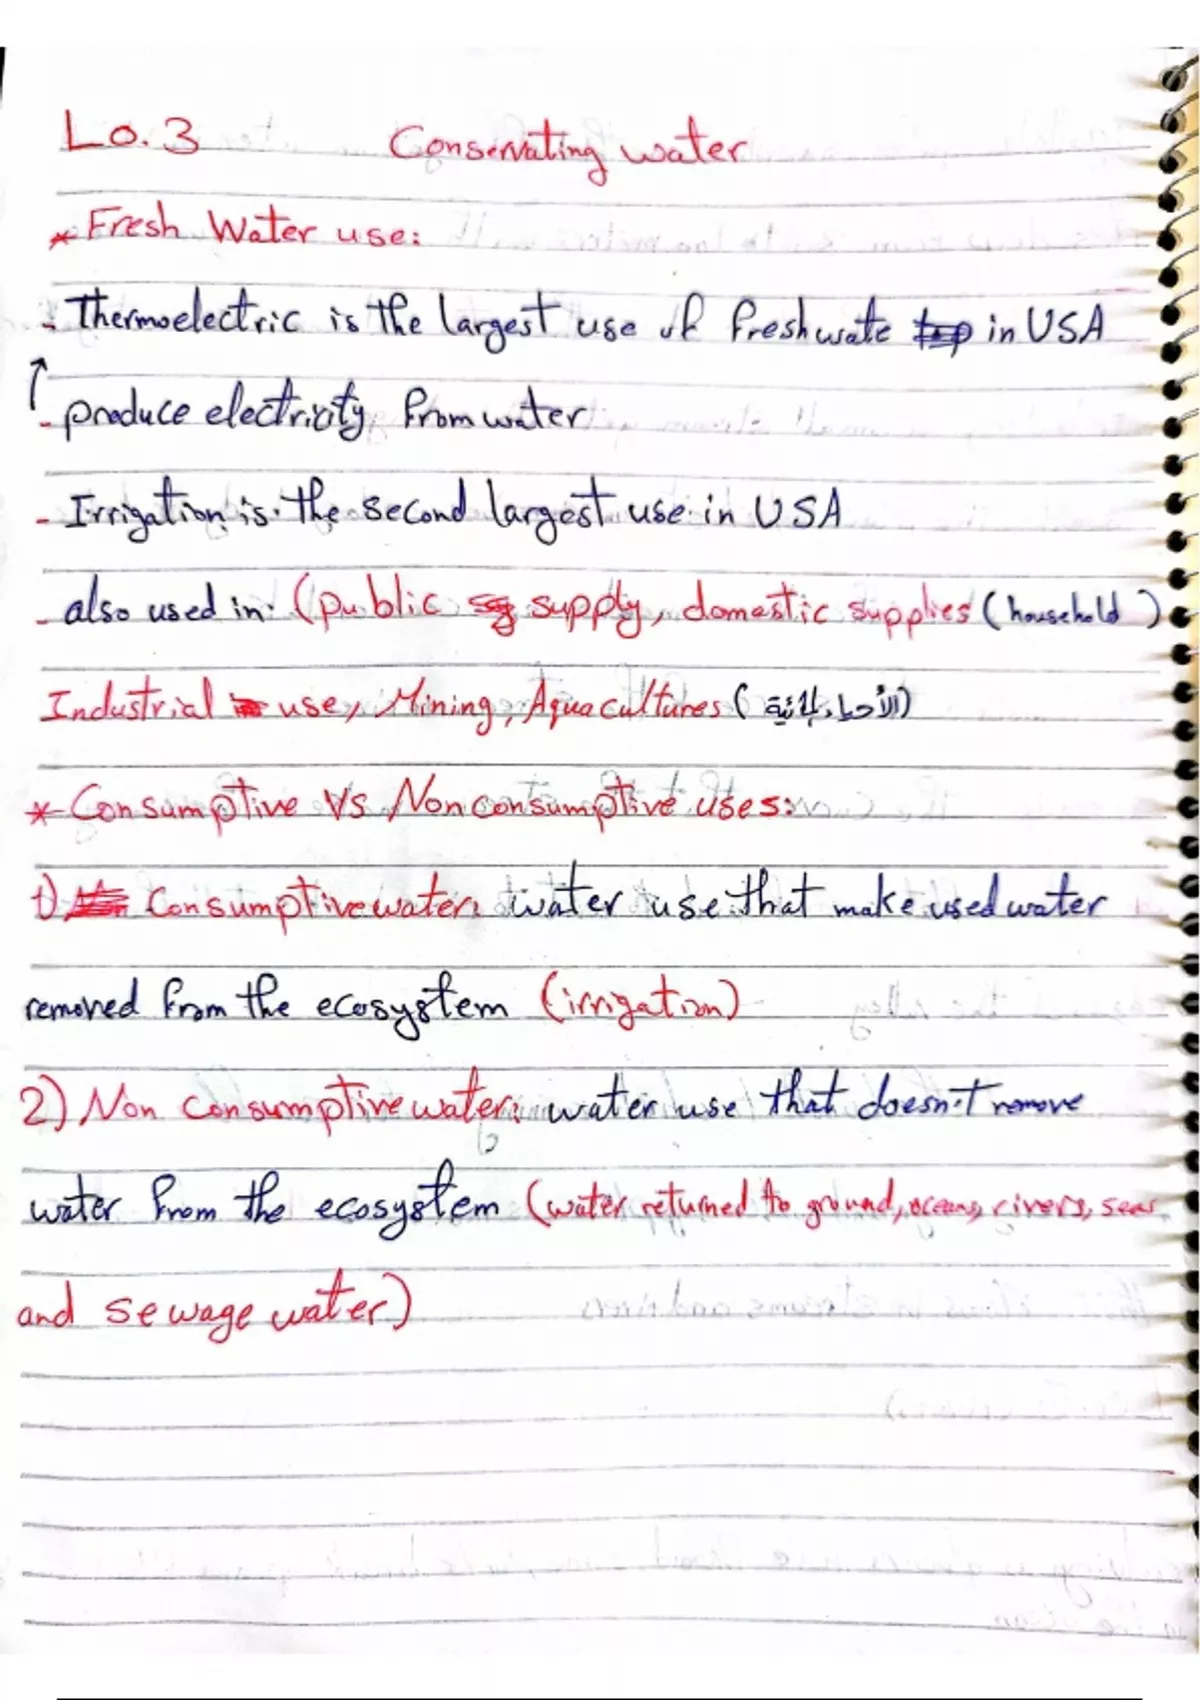 Lo.3 Conservating water
* Fresh Water use:
- Thermoelectric is the largest use of freshwate in USA
↑ - produce electricity from water
- Irrigation is the second largest use in USA
- also used in: (public supply, domestic supplies (household)
Industrial use, Mining, Aquacultures (الأحياء المائية)
* Consumptive Vs Nonconsumptive uses:
1) Consumptive water: water use that make used water
removed from the ecosystem (irrigation)
2) Non consumptive water: water use that doesn't remove
water from the ecosystem (water returned to ground, oceans, rivers, seas
and sewage water)